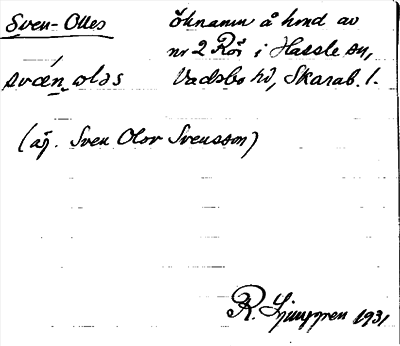 Sven-Olles öknamn å hmd av
nr 2 Rör i Hassle sn,
svæ̀n_olɔs Vadsbo hd, Skarab. l.
(äg. Sven Olov Svensson)
R. Ljunggren 1931